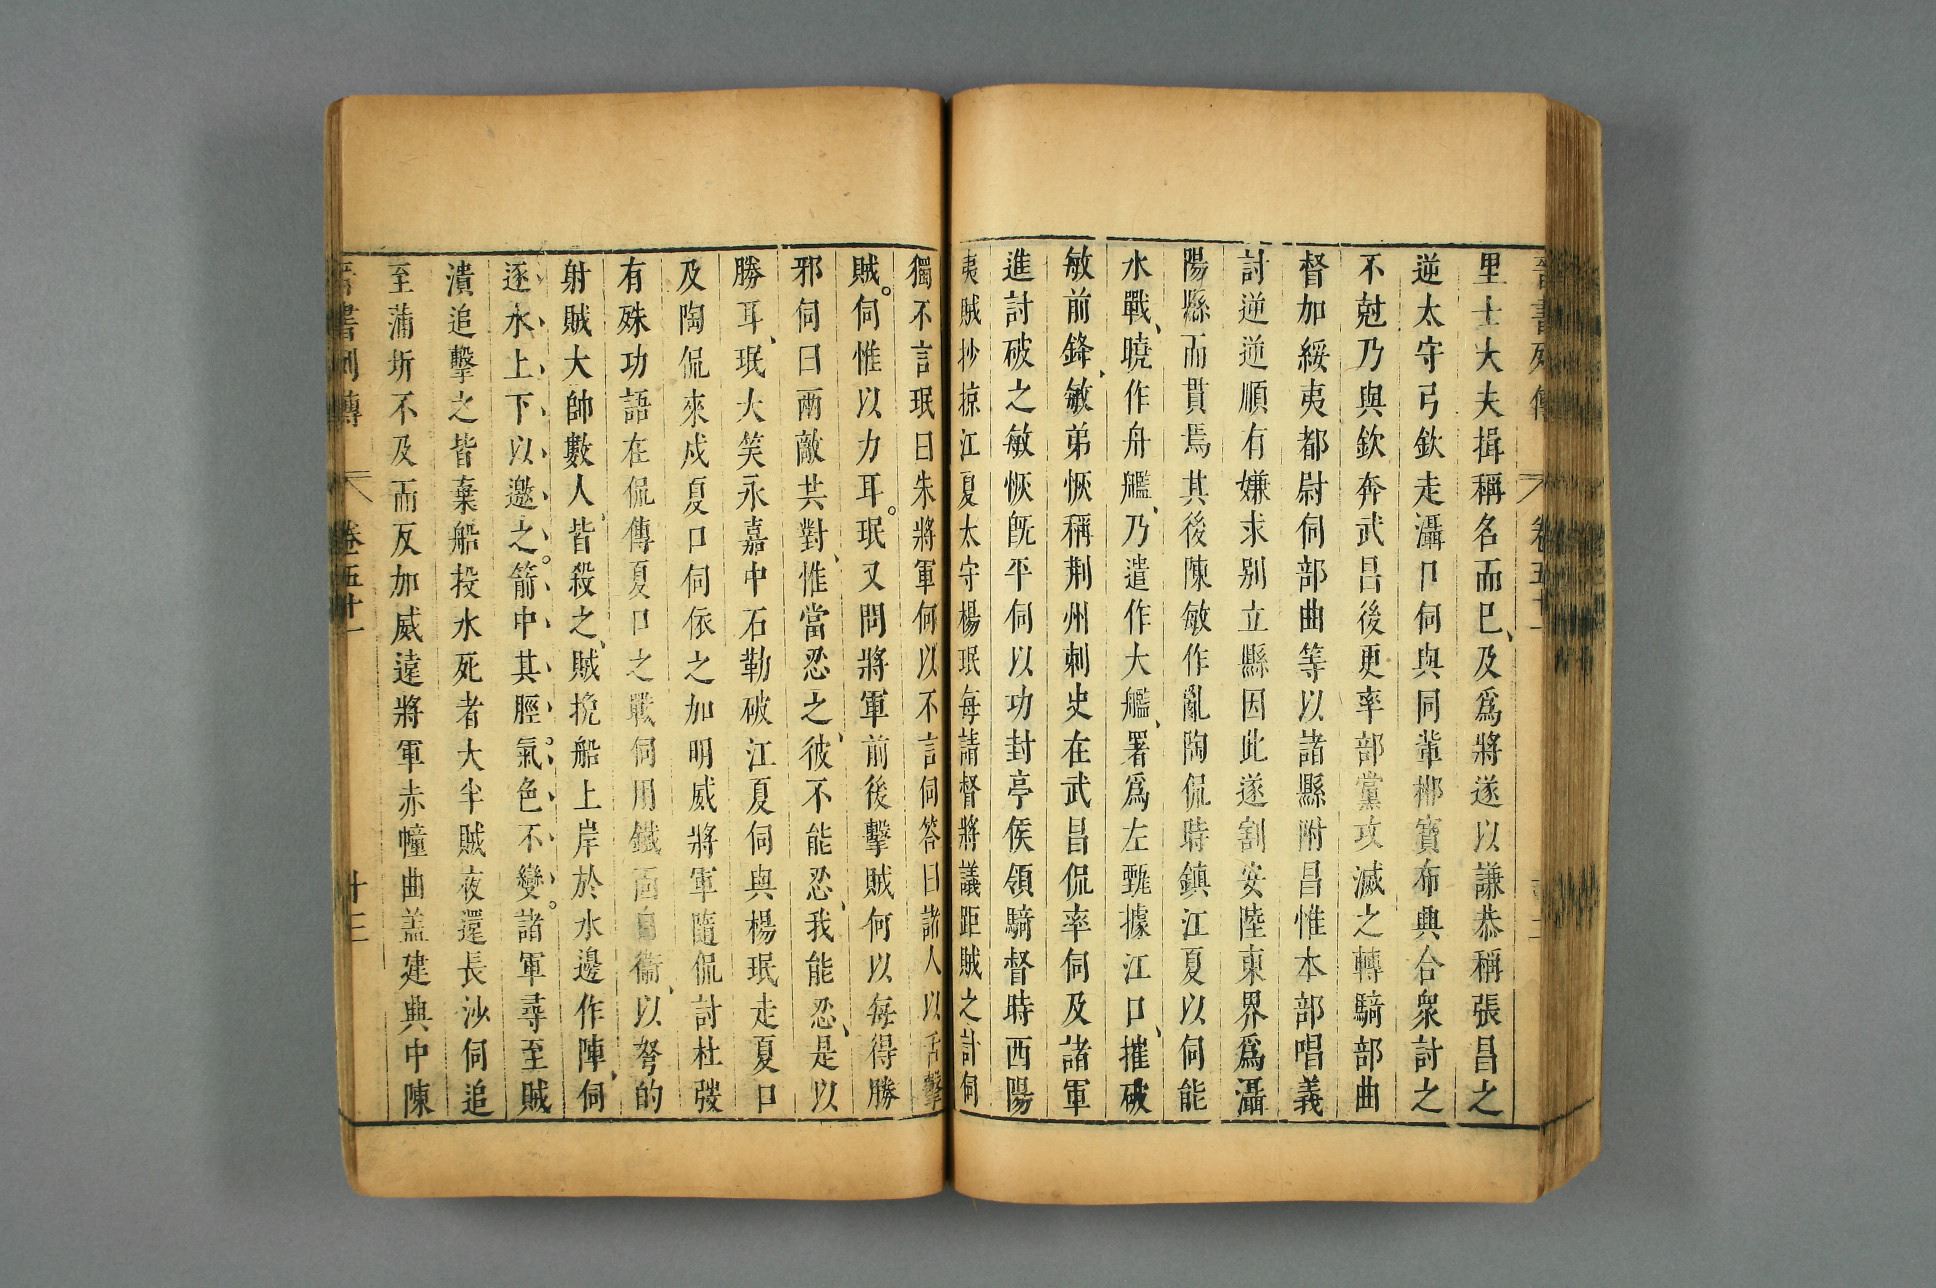 晉書列傳 卷五十一
里士大夫揖稱名而已、及爲將遂以謙恭稱張昌之
逆太守弓欽走灄口伺與同輩郴寶布興合衆討之
不尅乃與欽奔武昌後更率部黨攻滅之轉騎部曲
督加綏夷都尉伺部曲等以諸縣附昌惟本部唱義
討逆逆順有嫌求别立縣因此遂割安陸東界爲灄
陽縣而貫焉其後陳敏作亂陶侃時鎮江夏以伺能
水戰、曉作舟艦、乃遣作大艦、署爲左甄據江口、摧破
敏前鋒、敏弟恢稱荆州刺史在武昌侃率伺及諸軍
進討破之敏恢旣平伺以功封亭侯領騎督時西陽
夷賊抄掠江夏太守楊珉每請督將議距賊之計伺
獨不言珉曰朱將軍何以不言伺答曰諸人以舌擊
賊。伺惟以力耳。珉又問將軍前後擊賊何以每得勝
邪伺曰兩敵共對、惟當忍之、彼不能忍、我能忍、是以
勝耳、珉大笑永嘉中石勒破江夏伺與楊珉走夏口
及陶侃來戍夏口伺依之加明威將軍隨侃討杜弢
有殊功語在侃傳夏口之戰伺用鐵面自衞、以弩的
射賊大帥數人、皆殺之、賊挽船上岸於水邊作陣、伺
逐水上下以邀之。箭中其脛。氣色不變。諸軍尋至賊
潰追擊之皆棄船投水死者大半賊夜還長沙伺追
至蒲圻不及而反加威遠將軍赤幢曲盖建興中陳
晉書列傳 卷五十一 十三